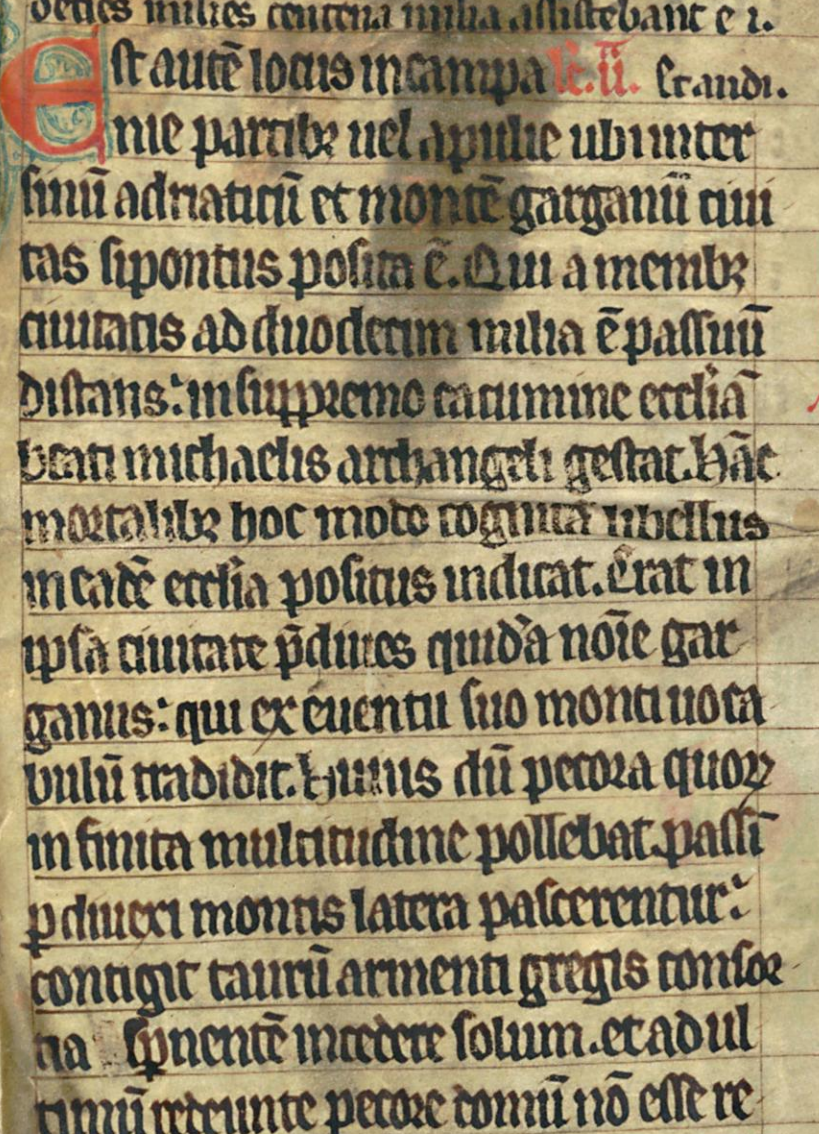 decies milies centena milia assistebant e i.
Est autē locus in campa lc̄.ii. scand̄i.
nie partibꝫ uel apulie ubi inter
sinū adriaticū et montē garganū ciui
tas sipontus posita ē. Qui a menibꝫ
ciuitatis ad duodecim milia ē passuū
distans: in suppremo cacumine eccl̄iā
beati michaelis archangeli gestat. Hāc
mortalibꝫ hoc modo cognitā libellus
in eadē eccl̄ia positus indicat. Erat in
ipsa ciuitate p̄diues quid̄a nōie gar
ganus: qui ex euentu suo monti uoca
bulū tradidit. Huius dū pecora quoꝝ
infinita multitudine pollebat passī
ꝑ diuexi montis latera pascerentur:
contigit taurū armenti gregis consor
tia sꝑnentē incedere solum. et ad ul
timū redeunte pecore domū nō esse re